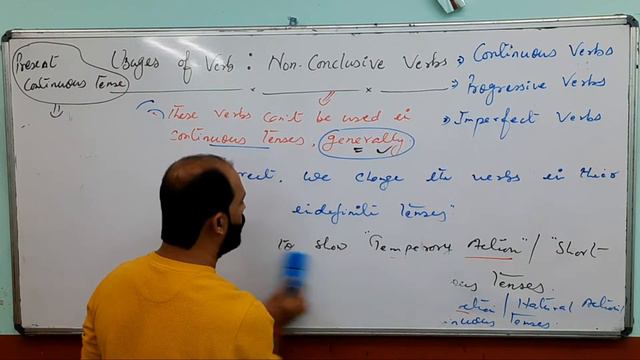 Present
Continuous Tense
Usages of Verb : Non-Conclusive Verbs
» Continuous Verbs
» Progressive Verbs
» Imperfect Verbs
These verbs can't be used in
continuous Tenses, generally
rect, we change the verbs in their
indefinite Tenses"
To show "Temporary Action" / "Short-
ous Tenses.
ction / Natural Action/
inuous Tenses.